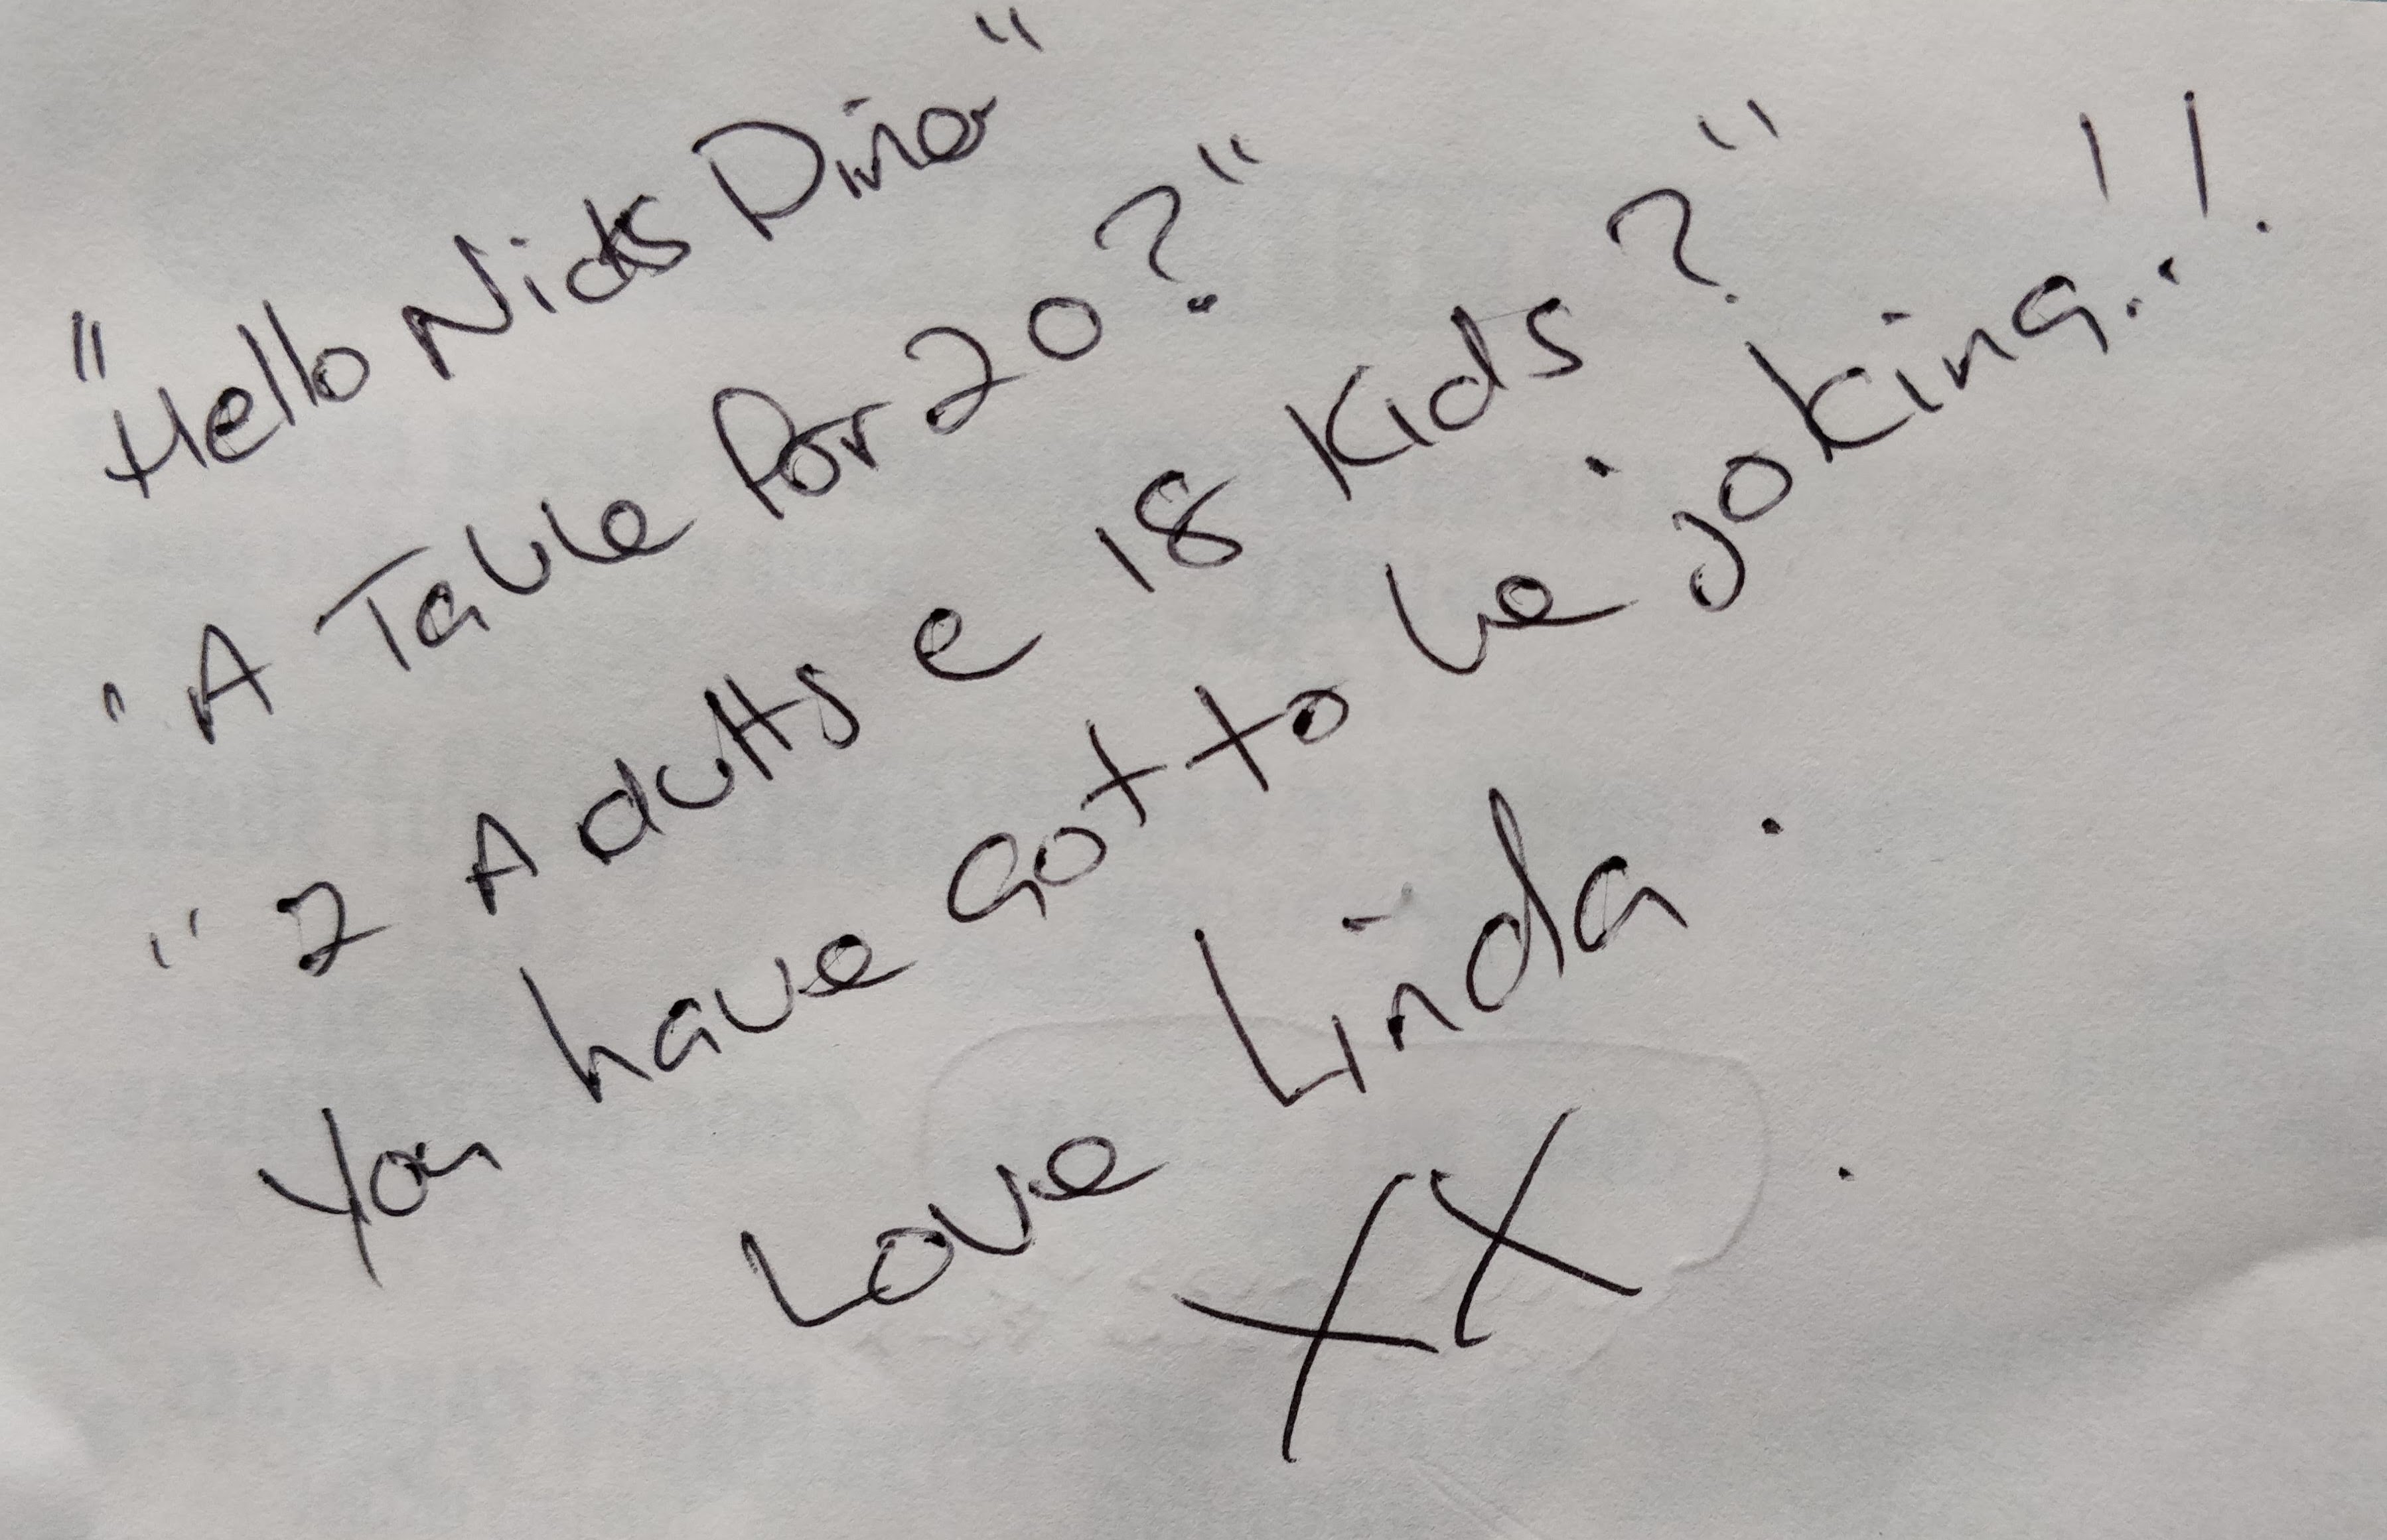 "Hello Nicks Diner"
"A Table for 20?"
"2 Adults e 18 Kids?"
You have got to be joking!!
Love Linda.
XX